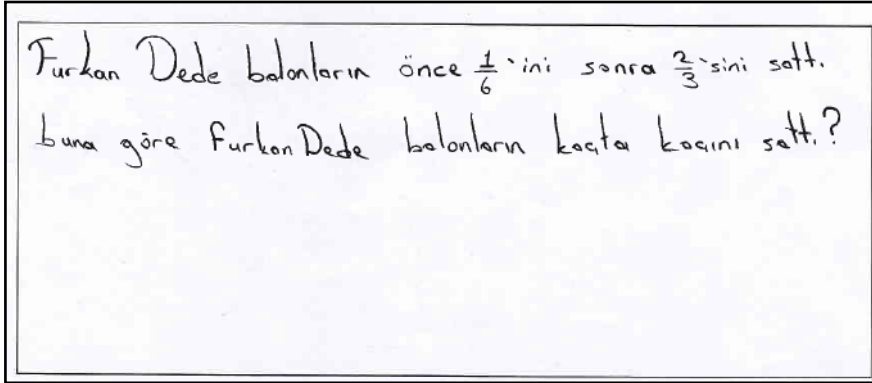 Furkan Dede balonların önce 1/6'ini sonra 2/3'sini sattı.
buna göre Furkan Dede balonların kaçta kaçını sattı?